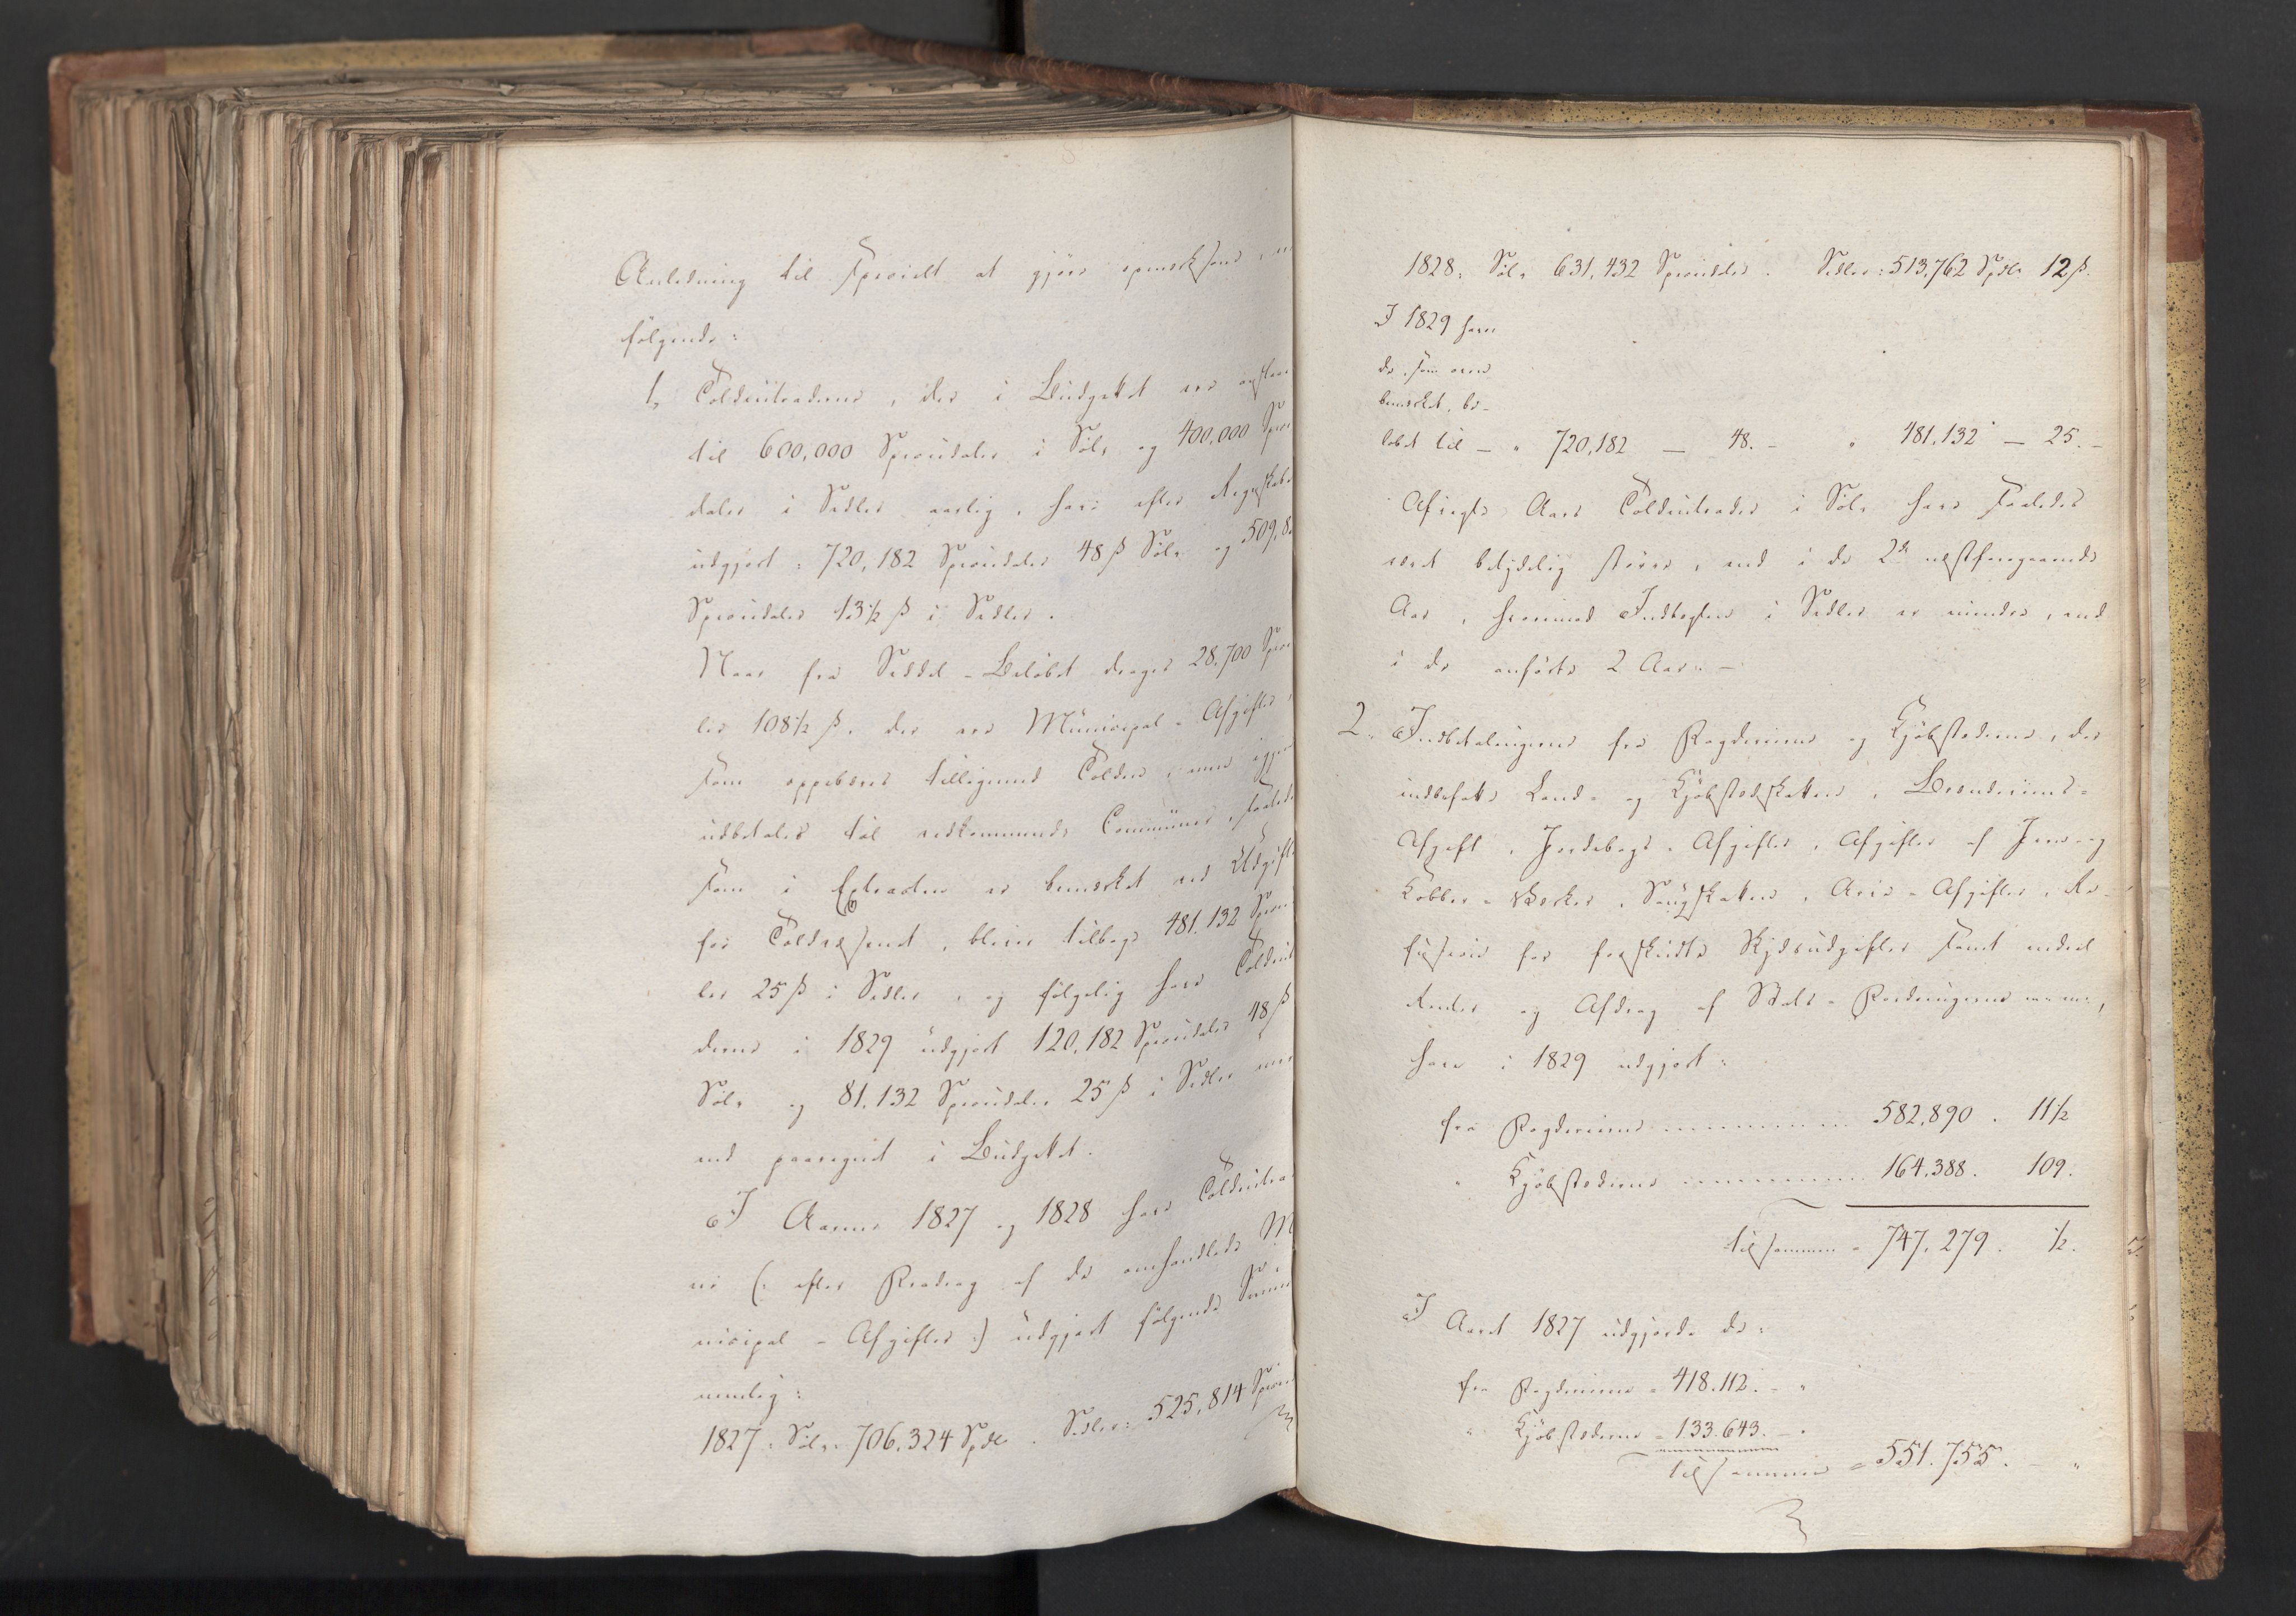 Anledning til specielt at gjøre opmærksom
følgende:
1, Toldintraderne, der i Büdgettet ere
til 600,000 Speciedaler i Sølv og 400,000 Specie
daler i Sedler aarlig, have efter Regnskabe
udgjort: 720,182 Speciedaler 48 ß Sølv og 509,8
Speciedaler 13½ ß i Sedler.
Naar fra Seddel-Beløbet drages 28,700 Specie
ler 108½ ß, der ere Münicipal-Afgifter,
som oppebæres tilligemed Tolden, men igjen
udbetales til vedkommende Commüner, saaled
som i Extracten er bemærket ved Udgift
for Toldvæsenet, bliver tilbage 481.132 Specie
ler 25 ß i Sedler, og følgelig have Toldint
derne i 1829 udgjort 120,182 Speciedaler 48 ß
Sølv og 81.132 Speciedaler 25 ß i Sedler mere
end paaregnet i Büdgettet.
I Aarene 1827 og 1828 have Toldintra
ne (: efter Fradrag af de omhandlede M
nicipal-Afgifter :) üdgjort følgende Summer
nemlig:
1827: Sølv: 706,324 Spdlr. Sedler: 525,814 Specie
1828: Sølv 631,432 Speciedaler. Sedler: 513,762 Spdlr 12 ß.
I 1829 have
de, som oven
bemærket, be-
løbet til - " 720,182 — 48. - " 481,132 — 25. -
Afvigte Aars Toldintrader i Sølv have saaledes
været betydelig større, end i de 2de næstforegaaende
Aar, hvorimod Indtægten i Sedler er mindre, end
i de anførte 2 Aar. -
2. Indbetalingerne fra Fogderierne og Kjøbstæderne, der
indbefatte Land- og Kjøbstedskatten, Brændeviins-
Afgift, Jordebogs-Afgifter, Afgifter af Jern- og
Kobber-Værker, Sœugskatten, Arve-Afgifter, Re-
fusion for forskudte Skydsudgifter samt endeel
Renter og Afdrag af Stats-Fordringerne m: m:,
have i 1829 udgjort:
fra Fogderierne 582,890. 11½
" Kjøbstæderne 164.388. 109.
tilsammen - 747.279. ½.
I Aaret 1827 udgjorde de:
fra Fogderierne - 418.112. - "
" Kjøbstæderne - 133.643. - "
tilsammen - 551.755. - "